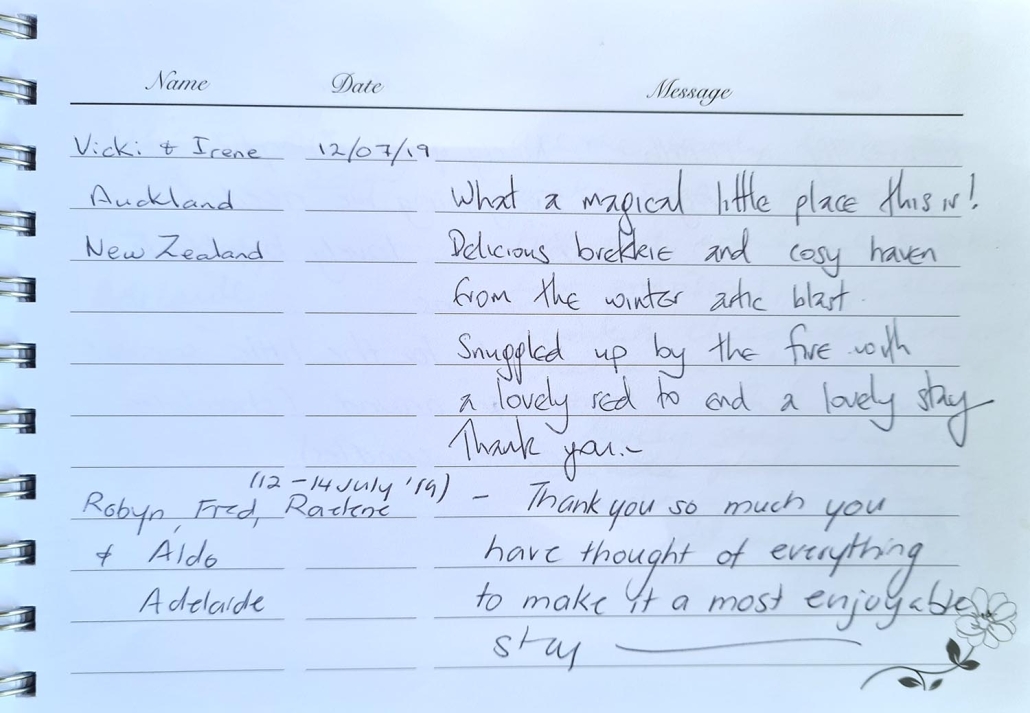 Name Date Message
Vicki & Irene 12/07/19
Auckland What a magical little place this is!
New Zealand Delicious brekkie and cosy haven
from the winter artic blast.
Snuggled up by the fire with
a lovely red to end a lovely stay
Thank you.~
(12-14 July '19)
Robyn, Fred, Raelene - Thank you so much you
& Aldo have thought of everything
Adelaide to make it a most enjoyable
stay